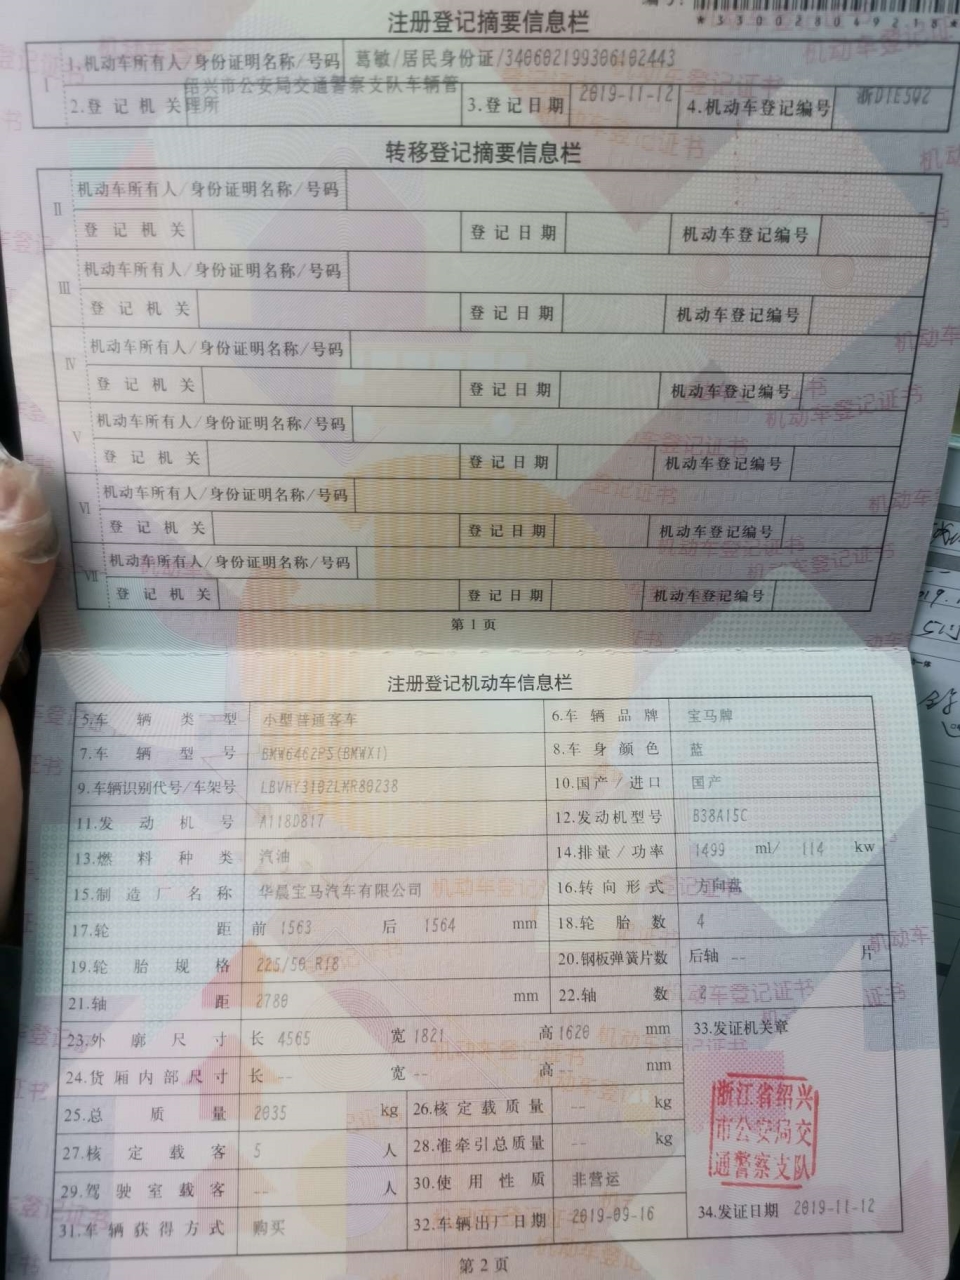 *330028049218*
注册登记摘要信息栏
I 1.机动车所有人/身份证明名称/号码 葛敏/居民身份证/340602199306102443
2.登记机关 绍兴市公安局交通警察支队车辆管理所 3.登记日期 2019-11-12 4.机动车登记编号 浙D1E5Q2
转移登记摘要信息栏
II 机动车所有人/身份证明名称/号码
登记机关 登记日期 机动车登记编号
III 机动车所有人/身份证明名称/号码
登记机关 登记日期 机动车登记编号
IV 机动车所有人/身份证明名称/号码
登记机关 登记日期 机动车登记编号
V 机动车所有人/身份证明名称/号码
登记机关 登记日期 机动车登记编号
VI 机动车所有人/身份证明名称/号码
登记机关 登记日期 机动车登记编号
VII 机动车所有人/身份证明名称/号码
登记机关 登记日期 机动车登记编号
第1页
注册登记机动车信息栏
5.车辆类型 小型普通客车 6.车辆品牌 宝马牌
7.车辆型号 BMW6462PS(BMWX1) 8.车身颜色 蓝
9.车辆识别代号/车架号 LBVHY3102LMR80238 10.国产/进口 国产
11.发动机号 A118D817 12.发动机型号 B38A15C
13.燃料种类 汽油 14.排量/功率 1499 ml/ 114 kw
15.制造厂名称 华晨宝马汽车有限公司 16.转向形式 方向盘
17.轮距 前 1563 后 1564 mm 18.轮胎数 4
19.轮胎规格 225/50 R18 20.钢板弹簧片数 后轴 -- 片
21.轴距 2780 mm 22.轴数 2
23.外廓尺寸 长 4565 宽 1821 高 1620 mm 33.发证机关章
24.货厢内部尺寸 长 -- 宽 -- 高 -- mm
25.总质量 2035 kg 26.核定载质量 -- kg
浙江省绍兴
市公安局交
通警察支队
27.核定载客 5 人 28.准牵引总质量 -- kg
29.驾驶室载客 -- 人 30.使用性质 非营运
31.车辆获得方式 购买 32.车辆出厂日期 2019-09-16 34.发证日期 2019-11-12
第2页